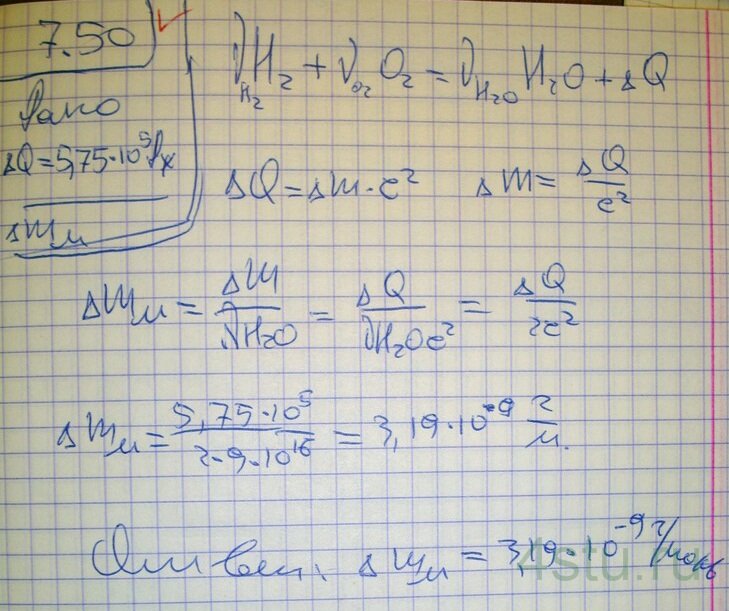 7.50
Дано
ΔQ = 5,75·10⁵ Дж
Δmм
νH₂ H₂ + νO₂ O₂ = νH₂O H₂O + ΔQ
ΔQ = Δm·c² Δm = ΔQ/c²
Δmм = Δm/νH₂O = ΔQ/νH₂Oc² = ΔQ/2c²
Δmм = 5,75·10⁵/2·9·10¹⁶ = 3,19·10⁻⁹ г/м.
Ответ: Δmм = 3,19·10⁻⁹ г/моль
4stu.ru